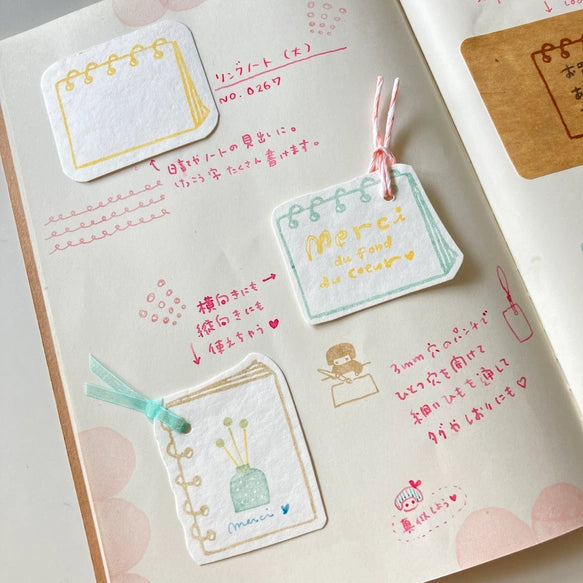 リングノート(大)
NO.0267
↑日記やノートの見出しに。
けっこう字たくさん書けます。
Merci
du fond
du coeur♥
横向きにも→
縦向きにも
↓使えちゃう♥
3mm穴のパンチで
ひとつ穴を開けて
細いひもを通して
タグやしおりにも♥
merci
真似しよう♥